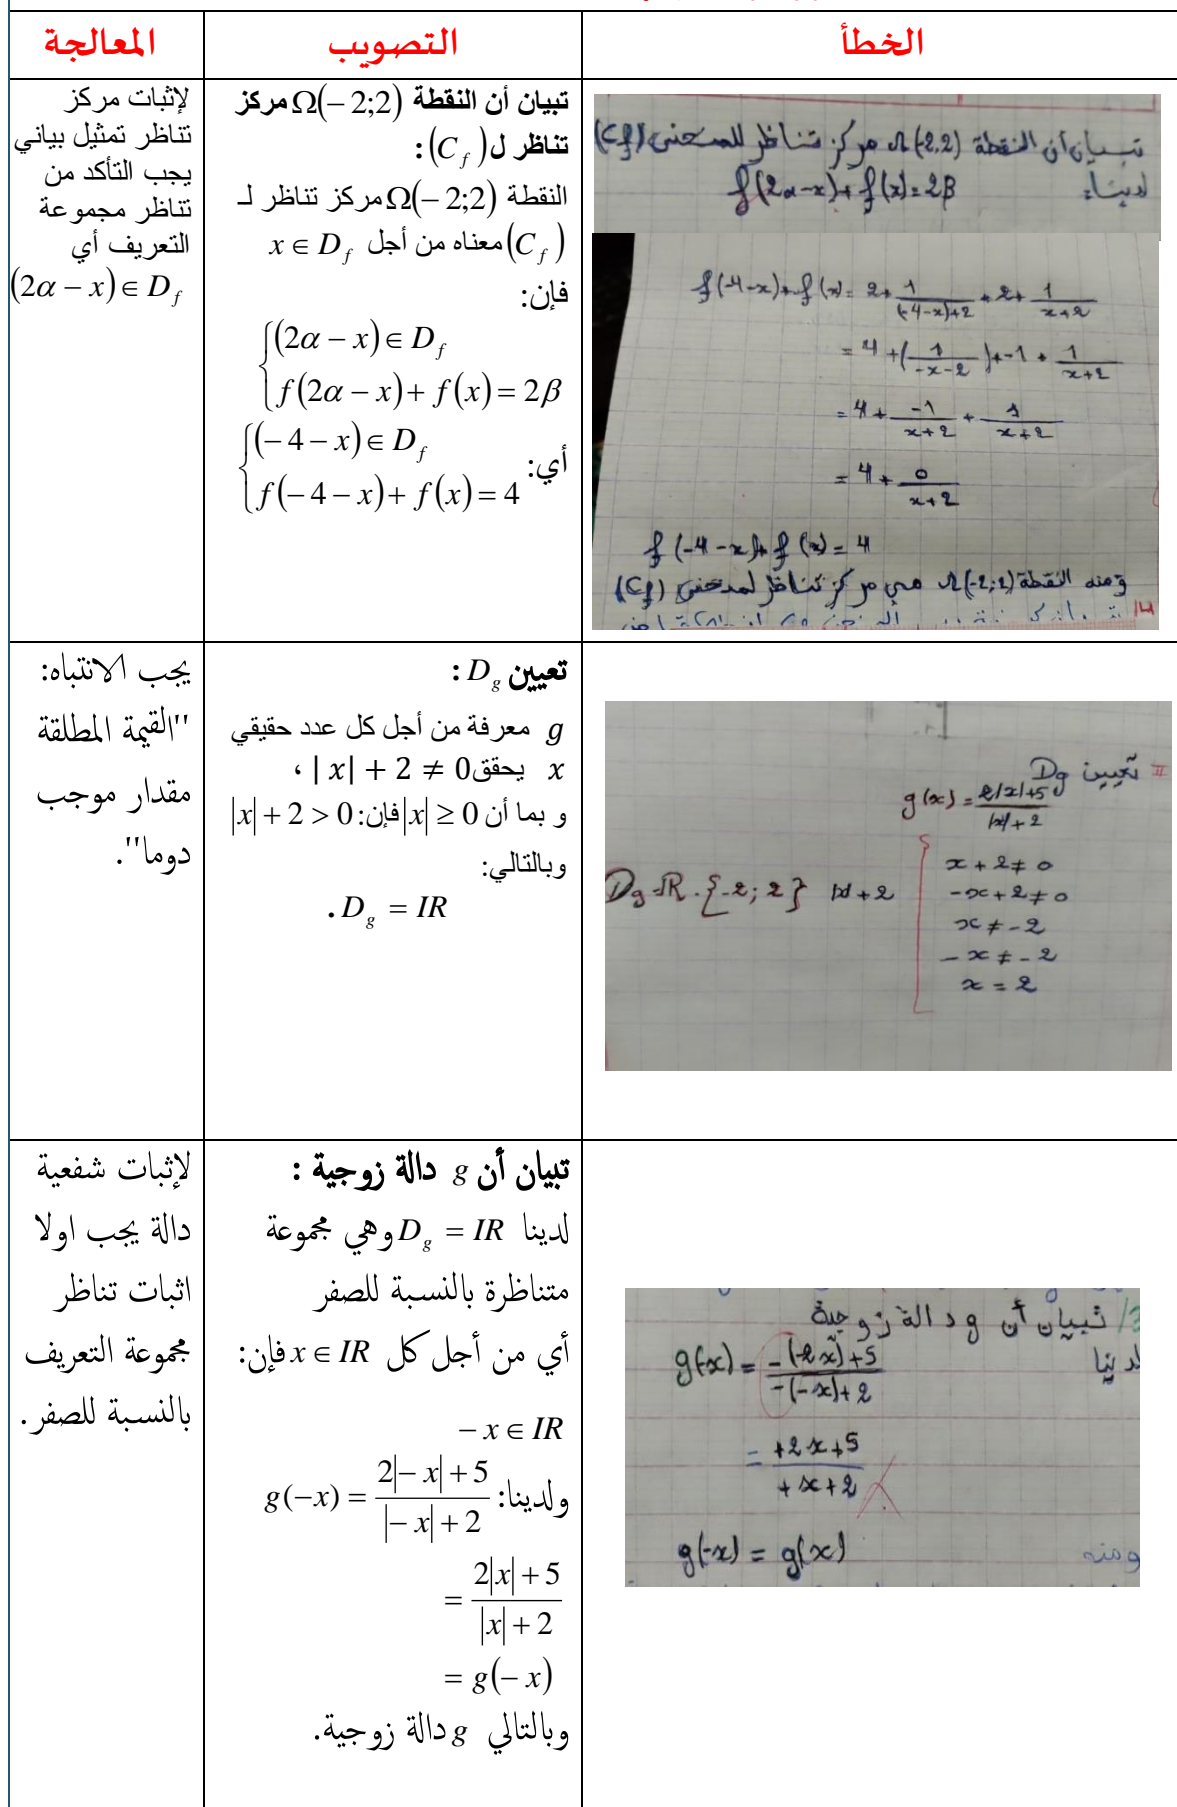 الخطأ
التصويب
المعالجة
تبيان أن النقطة Ω(-2,2) مركز تناظر للمنحنى (Cf)
لدينا: f(2α-x)+f(x)=2β
f(-4-x)+f(x)= 2+ 1/((-4-x)+2) +2+ 1/(x+2)
= 4+(1/(-x-2))+-1+ 1/(x+2)
= 4+ -1/(x+2) + 1/(x+2)
= 4+ 0/(x+2)
f(-4-x)+f(x)=4
ومنه النقطة Ω(-2;2) هي مركز تناظر لمدحنى (Cf)
تبيان أن النقطة Ω(-2;2) مركز
تناظر ل (C_f):
النقطة Ω(-2;2) مركز تناظر لـ
(C_f) معناه من أجل x ∈ D_f
فإن:
{(2α-x) ∈ D_f
f(2α-x)+f(x)=2β
أي: {(-4-x) ∈ D_f
f(-4-x)+f(x)=4
لإثبات مركز
تناظر تمثيل بياني
يجب التأكد من
تناظر مجموعة
التعريف أي
(2α-x) ∈ D_f
II تعيين Dg
g(x) = (2|x|+5)/(|x|+2)
x+2≠0
Dg=R-{-2;2} |x|+2 -x+2≠0
x≠-2
-x≠-2
x=2
تعيين D_g:
g معرفة من أجل كل عدد حقيقي
x يحقق |x|+2≠0،
و بما أن |x|≥0 فإن: |x|+2>0
وبالتالي:
D_g = IR.
يجب الانتباه:
''القيمة المطلقة
مقدار موجب
دوما''.
3/ تبيان أن g دالة زوجية
لدينا g(-x) = (-(-2x)+5)/(-(-x)+2)
= (+2x+5)/(+x+2)
ومنه g(-x) = g(x)
تبيان أن g دالة زوجية :
لدينا D_g = IR وهي مجموعة
متناظرة بالنسبة للصفر
أي من أجل كل x ∈ IR فإن:
-x ∈ IR
ولدينا: g(-x) = (2|-x|+5)/(|-x|+2)
= (2|x|+5)/(|x|+2)
= g(-x)
وبالتالي g دالة زوجية.
لإثبات شفعية
دالة يجب اولا
اثبات تناظر
مجموعة التعريف
بالنسبة للصفر.